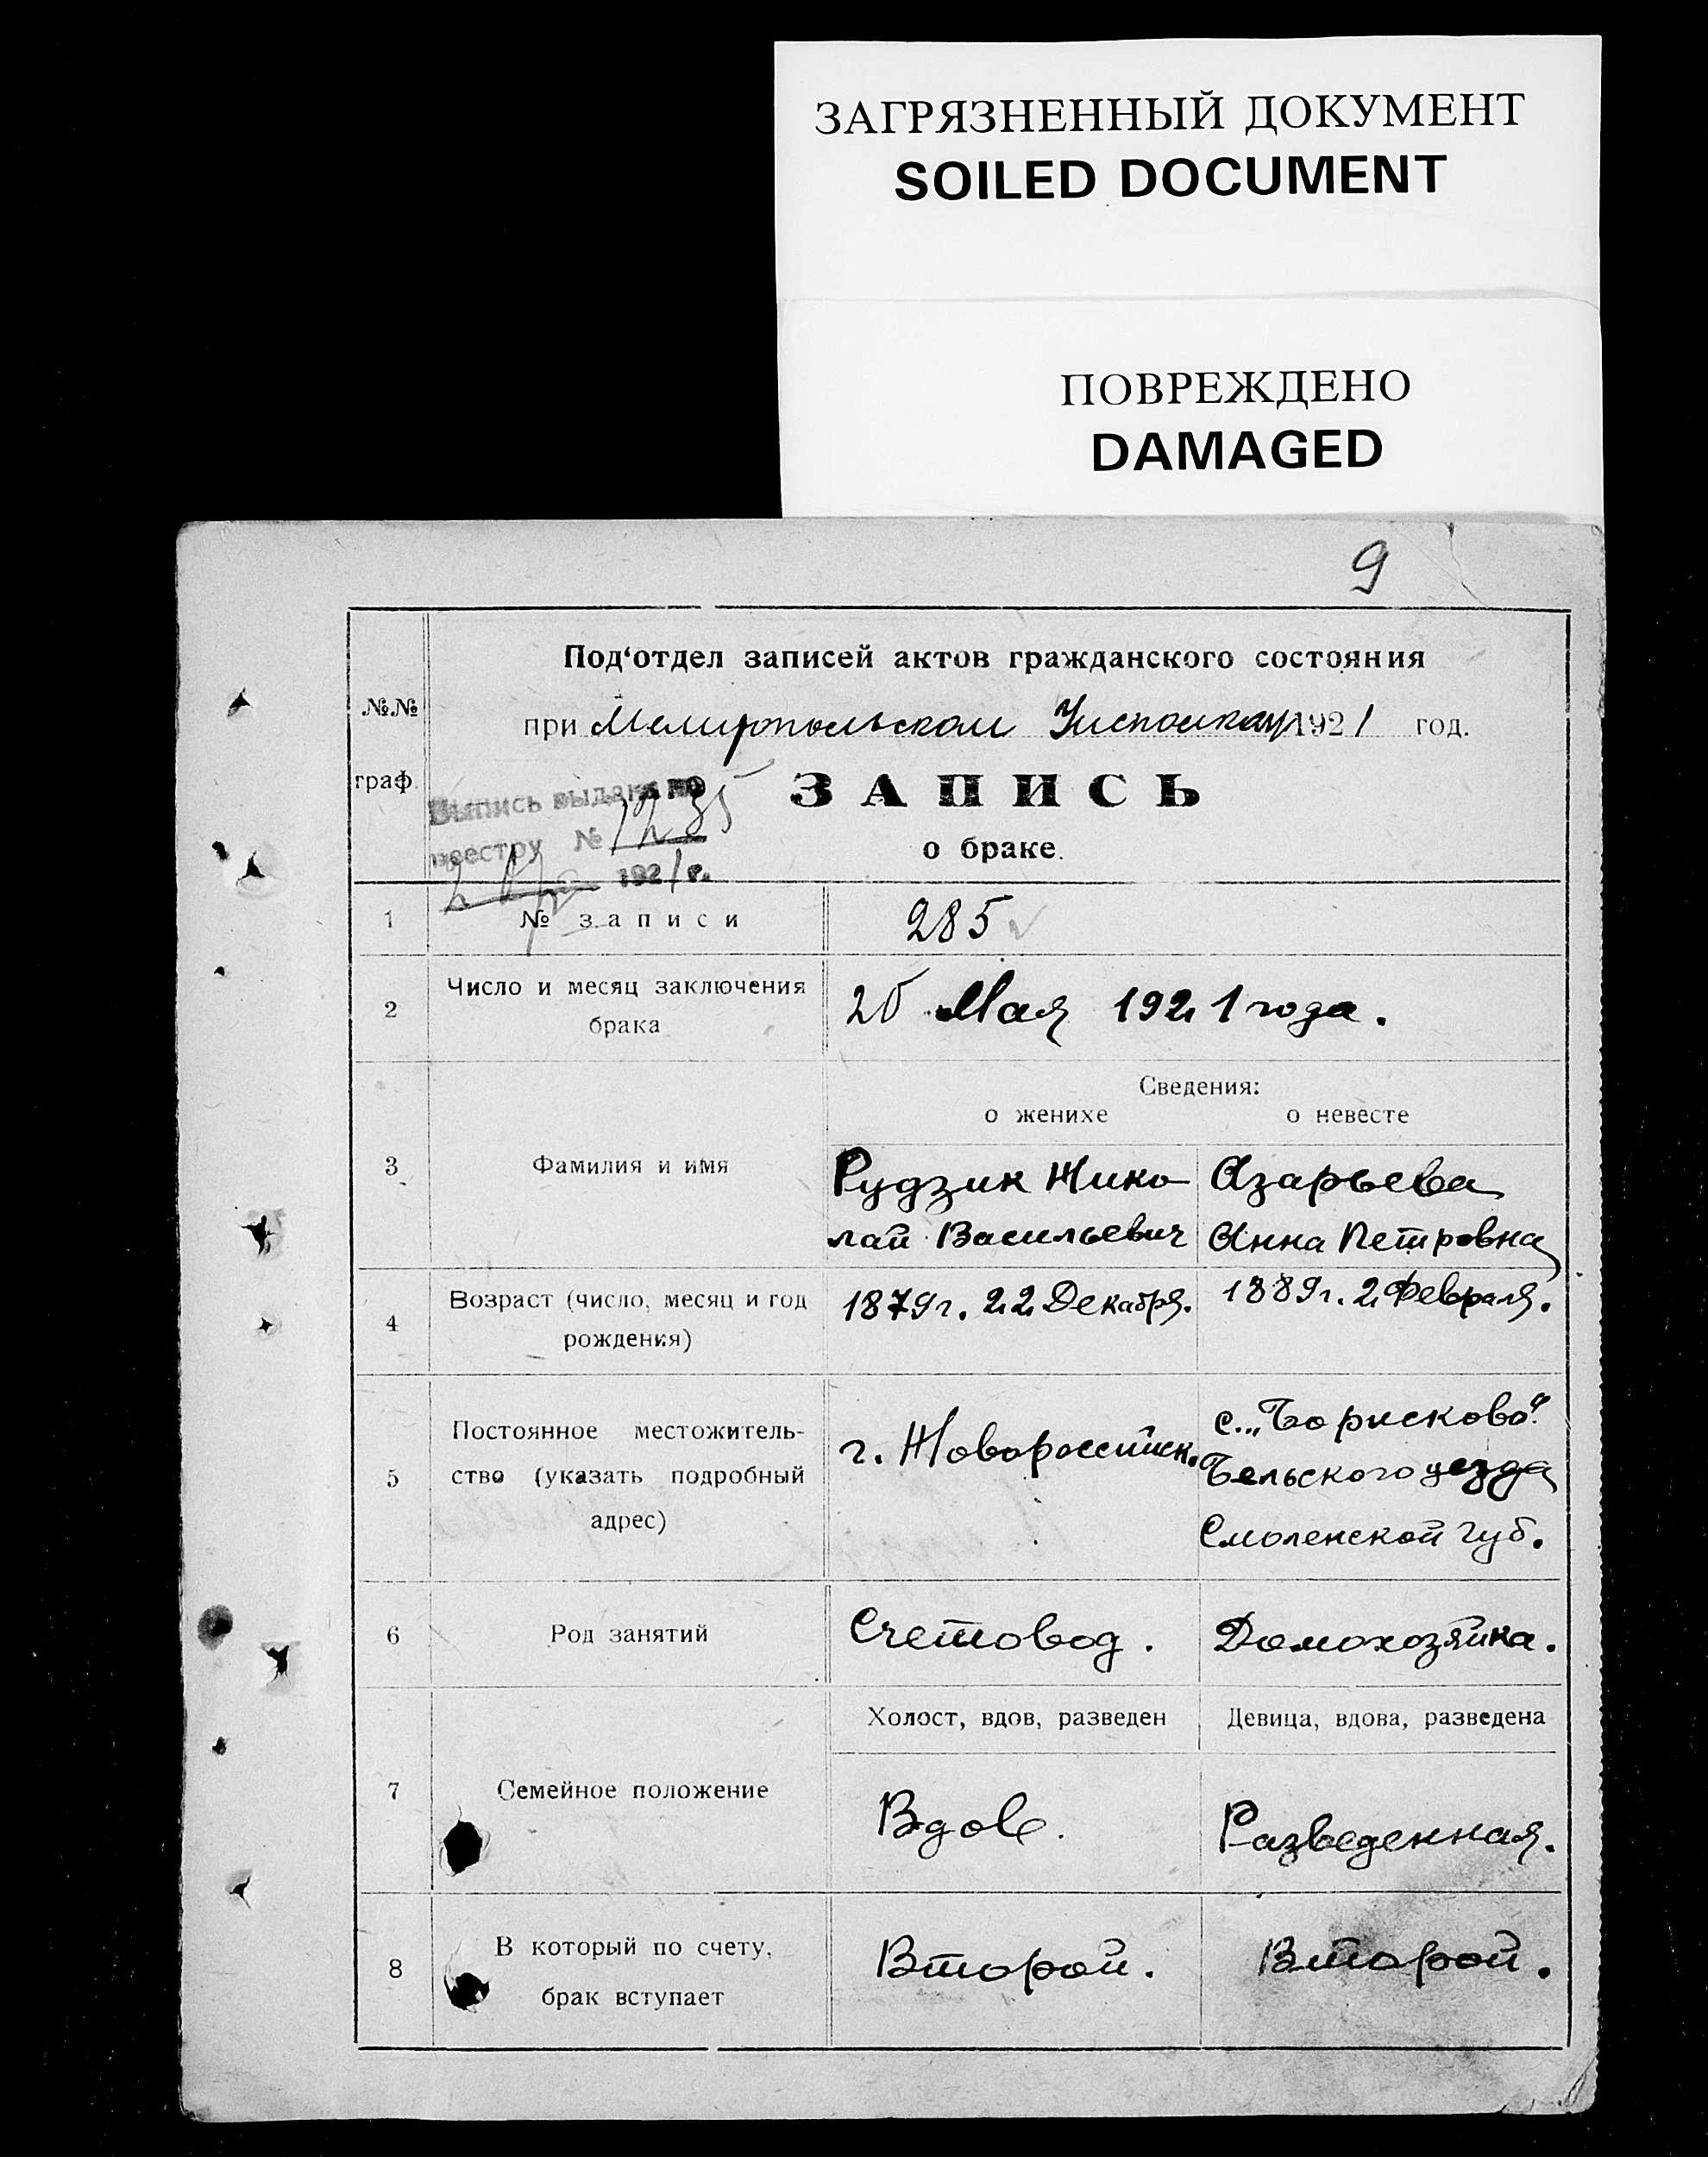 ЗАГРЯЗНЕННЫЙ ДОКУМЕНТ
SOILED DOCUMENT
ПОВРЕЖДЕНО
DAMAGED
9
№№
граф.
Под‘отдел записей актов гражданского состояния
при Мелитопольском 1921 год.
Выпись выдана по
реестру № 1235
1921 г.
ЗАПИСЬ
о браке.
1 № записи 285
2 Число и месяц заключения
брака
Мая 1921 года.
Сведения:
о женихе о невесте
3 Фамилия и имя
Рудзик Нико Азарьева
лай Васильевич Анна Петровна
4 Возраст (число, месяц и год
рождения)
1879 г. 22 Декабря. 1889 г. 2 Февраля.
5 Постоянное местожитель-
ство (указать подробный
адрес)
г. Новороссийск. с. „Борисково“
Бельского уезда
Смоленской губ.
6 Род занятий Счетовод. Домохозяйка.
Холост, вдов, разведен Девица, вдова, разведена
7 Семейное положение Вдов. Разведенная.
8 В который по счету,
брак вступает
Второй. Второй.